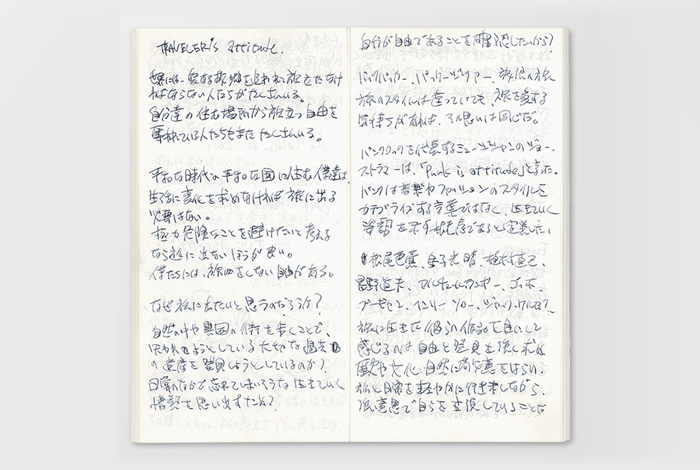 TRAVELER'S attitude.
世界には、愛する故郷を追われて旅立たなけ
ればならない人たちがたくさんいる。
自分達の住む場所から旅立つ自由を
奪われている人たちもまた たくさんいる。
平和な時代の平和な国に住む僕達は、
生活に変化を求めなければ旅に出る
必要はない。
極力危険なことを避けたいと考える
なら旅に出ないほうが良い。
僕たちには、旅をしない自由がある。
なぜ旅に出たいと思うのだろうか？
自然の中や異国の街を歩くことで、
失われようとしている大切な過去
の遺産を発見しようとしているのか？
日常のなかで忘れてしまいそうな 生きていく
を思い出すため？
自分が自由であることを確認したいから？
バックパッカー、バッケージツアー、旅
旅のスタイルは違っていても、旅を愛する
気持ちがあれば、その思いは同じだ。
パンクロックを代表するミュージシャンのジョー・
ストラマーは、「Punk is attitude」と言った。
パンクは音楽やファッションのスタイルを
カテゴライズする言葉ではなく、生きていく
姿勢を示す概念であると定義した。
松尾芭蕉、金子光晴、植村直己、
星野道夫、アルチュールランボー、ゴッホ、
ゴーギャン、ヘンリー・ソロー、ジャック・ケルアック。
旅に生きた彼らの作品を目にして
感じるのは 自由と発見を強く求め
歴史や文化、自然に敬意をはらい、
旅と日常を軽やかに行き来しながら、
強い意思で自らを表現していることだ